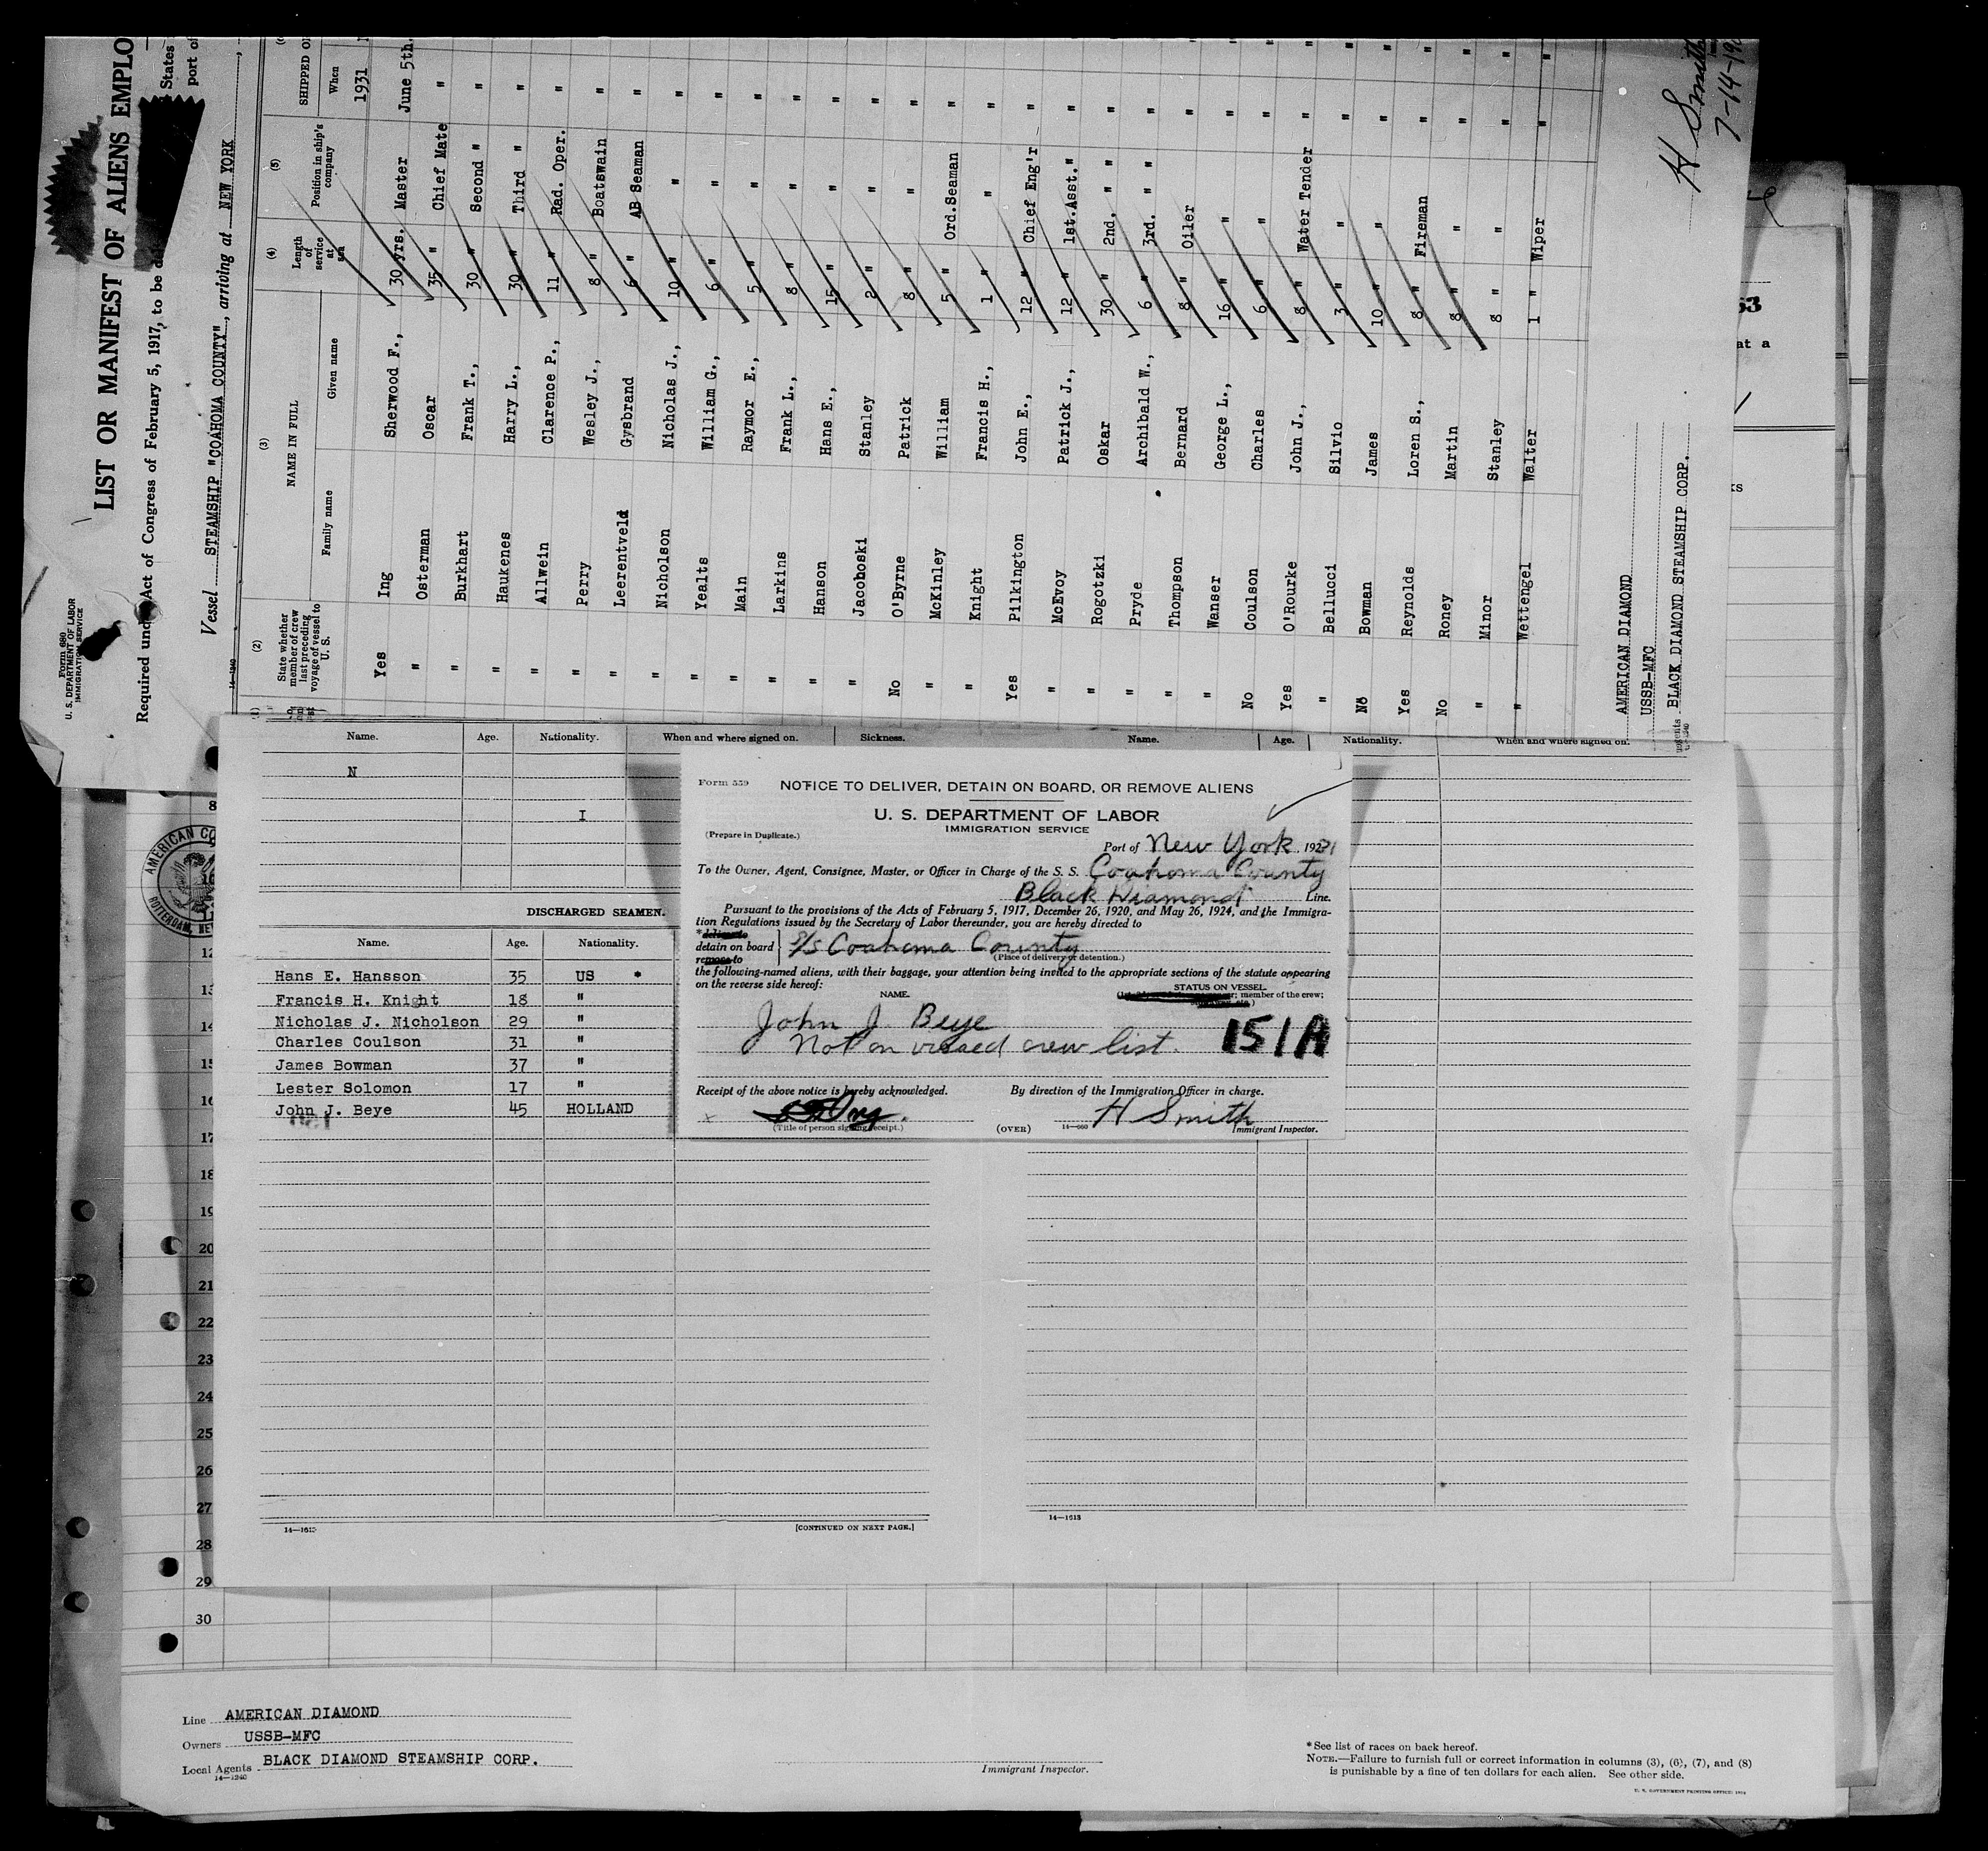 Form 680
U. S. DEPARTMENT OF LABOR
IMMIGRATION SERVICE
LIST OR MANIFEST OF ALIENS EMPLO
Required und Act of Congress of February 5, 1917, to be de
States
port of
Vessel STEAMSHIP "COAHOMA COUNTY", arriving at NEW YORK,
14—1240
(2) (3) (4) (5)
State whether member of crew last preceding voyage of vessel to U. S.
NAME IN FULL
Family name Given name
Length of service at sea
Position in ship's company
SHIPPED O
When
1931
Yes Ing Sherwood F., 30 yrs. Master June 5th.
" Osterman Oscar 35 " Chief Mate "
" Burkhart Frank T., 30 " Second " "
" Haukenes Harry L., 30 " Third " "
" Allwein Clarence P., 11 " Rad. Oper. "
" Perry Wesley J., 8 " Boatswain "
" Leerentveld Gysbrand 6 " AB Seaman "
" Nicholson Nicholas J., 10 " " "
" Yealts William G., 6 " " "
" Main Raymor E., 5 " " "
" Larkins Frank L., 8 " " "
" Hanson Hans E., 15 " " "
" Jacoboski Stanley 2 " " "
No O'Byrne Patrick 8 " " "
" McKinley William 5 " Ord.Seaman "
" Knight Francis H., 1 " " "
Yes Pilkington John E., 12 " Chief Eng'r "
" McEvoy Patrick J., 12 " 1st.Asst." "
" Rogotzki Oskar 30 " 2nd. " " "
" Pryde Archibald W., 6 " 3rd. " " "
" Thompson Bernard 8 " Oiler "
" Wanser George L., 16 " " "
No Coulson Charles 6 " " "
Yes O'Rourke John J., 8 " Water Tender "
" Bellucci Silvio 3 " " "
No Bowman James 10 " " "
Yes Reynolds Loren S., 8 " Fireman "
No Roney Martin 8 " " "
" Minor Stanley 8 " " "
" Wettengel Walter 1 " Wiper "
AMERICAN DIAMOND
USSB-MFC
BLACK DIAMOND STEAMSHIP CORP.
H Smith
7-14-19
53
at a
ks
Name. Age. Nationality. When and where signed on. Sickness. Name. Age. Nationality. When and where signed on.
N
I
AMERICAN CO
ROTTERDAM, NE
DISCHARGED SEAMEN.
Name. Age. Nationality.
Hans E. Hansson 35 US *
Francis H. Knight 18 "
Nicholas J. Nicholson 29 "
Charles Coulson 31 "
James Bowman 37 "
Lester Solomon 17 "
John J. Beye 45 HOLLAND
Form 559
NOTICE TO DELIVER, DETAIN ON BOARD, OR REMOVE ALIENS
U. S. DEPARTMENT OF LABOR
IMMIGRATION SERVICE
(Prepare in Duplicate.)
Port of New York, 1931
To the Owner, Agent, Consignee, Master, or Officer in Charge of the S. S. Coahoma County
Black Diamond Line.
Pursuant to the provisions of the Acts of February 5, 1917, December 26, 1920, and May 26, 1924, and the Immigra-
tion Regulations issued by the Secretary of Labor thereunder, you are hereby directed to
*deliver to
detain on board } S/S Coahoma County
remove to
(Place of delivery or detention.)
the following-named aliens, with their baggage, your attention being invited to the appropriate sections of the statute appearing
on the reverse side hereof:
NAME. STATUS ON VESSEL
member of the crew;
John J. Beye
Not on visaed crew list. 151A
Receipt of the above notice is hereby acknowledged. By direction of the Immigration Officer in charge.
x H Smith
(Title of person signing receipt.) (OVER) 14—660 Immigrant Inspector.
8
12
13
14
15
16
17
18
19
20
21
22
23
24
25
26
27
28
29
30
14—1613 [CONTINUED ON NEXT PAGE.] 14—1613
Line AMERICAN DIAMOND
Owners USSB-MFC
Local Agents BLACK DIAMOND STEAMSHIP CORP.
14—1240
Immigrant Inspector.
*See list of races on back hereof.
NOTE.—Failure to furnish full or correct information in columns (3), (6), (7), and (8)
is punishable by a fine of ten dollars for each alien. See other side.
U. S. GOVERNMENT PRINTING OFFICE: